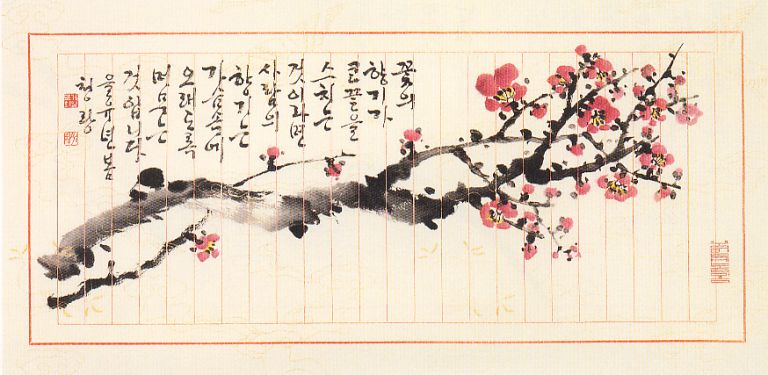 꽃의
향기가
코끝을
스치는
것이라면
사람의
향기는
가슴속에
오래도록
머무는
것입니다
을유년 봄